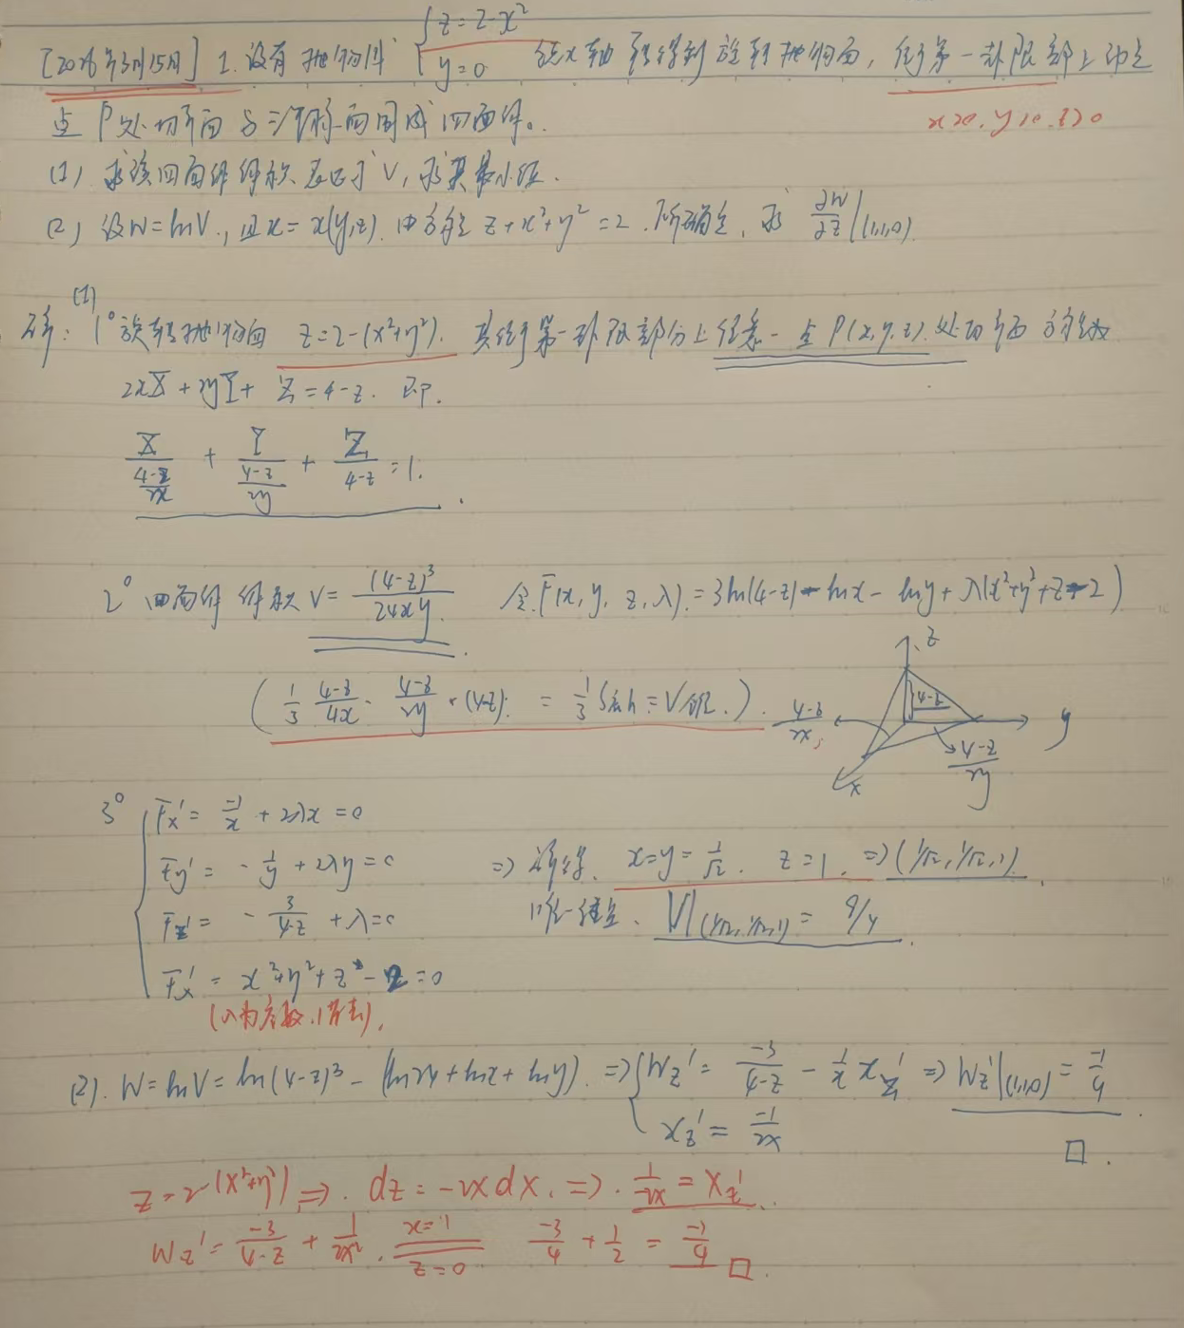 [2026年3月15日] 1. 设有抛物线 { z=2-x² y=0 绕x轴旋转得到旋转抛物面, 位于第一卦限部上动点
点P处切平面与三坐标面围成四面体。
x>0, y>0, z>0
(1) 求该四面体体积 V, 求其最小值.
(2) 设W=lnV, 且x=x(y,z) 由方程 z+x²+y²=2 所确定, 求 ∂W/∂z|(1,1,0)
解: (1) 1° 旋转抛物面 z=2-(x²+y²). 其位于第一卦限部分上任意一点P(x,y,z)处切平面方程为
2xX+2yY+Z=4-z. 即.
X/((4-z)/2x) + Y/((4-z)/2y) + Z/(4-z) = 1.
2° 四面体体积 V=(4-z)³/24xy. 令F(x,y,z,λ)=3ln(4-z)-lnx-lny+λ(x²+y²+z-2)
(1/3 · (4-z)/4x · (4-z)/2y · (4-z). = 1/3 S h = V.)
z
4-z
(4-z)/2x
y
(4-z)/2y
x
3° { Fx' = -1/x + 2λx = 0
Fy' = -1/y + 2λy = 0 ⇒ 解得. x=y=1/√2. z=1. ⇒ (1/√2, 1/√2, 1)
Fz' = -3/(4-z) + λ = 0 唯一驻点. V|(1/√2,1/√2,1) = 9/4
Fλ' = x²+y²+z-2=0
(λ为
(2). W=lnV=ln(4-z)³-(ln24+lnx+lny). ⇒ { Wz' = -3/(4-z) - 1/x xz' ⇒ Wz'|(1,1,0) = -1/4
xz' = -1/2x
□.
z=2-(x²+y²) ⇒. dz=-2xdx. ⇒. 1/-2x = xz'
Wz' = -3/(4-z) + 1/2x². x=1 z=0 -3/4 + 1/2 = -1/4 □.